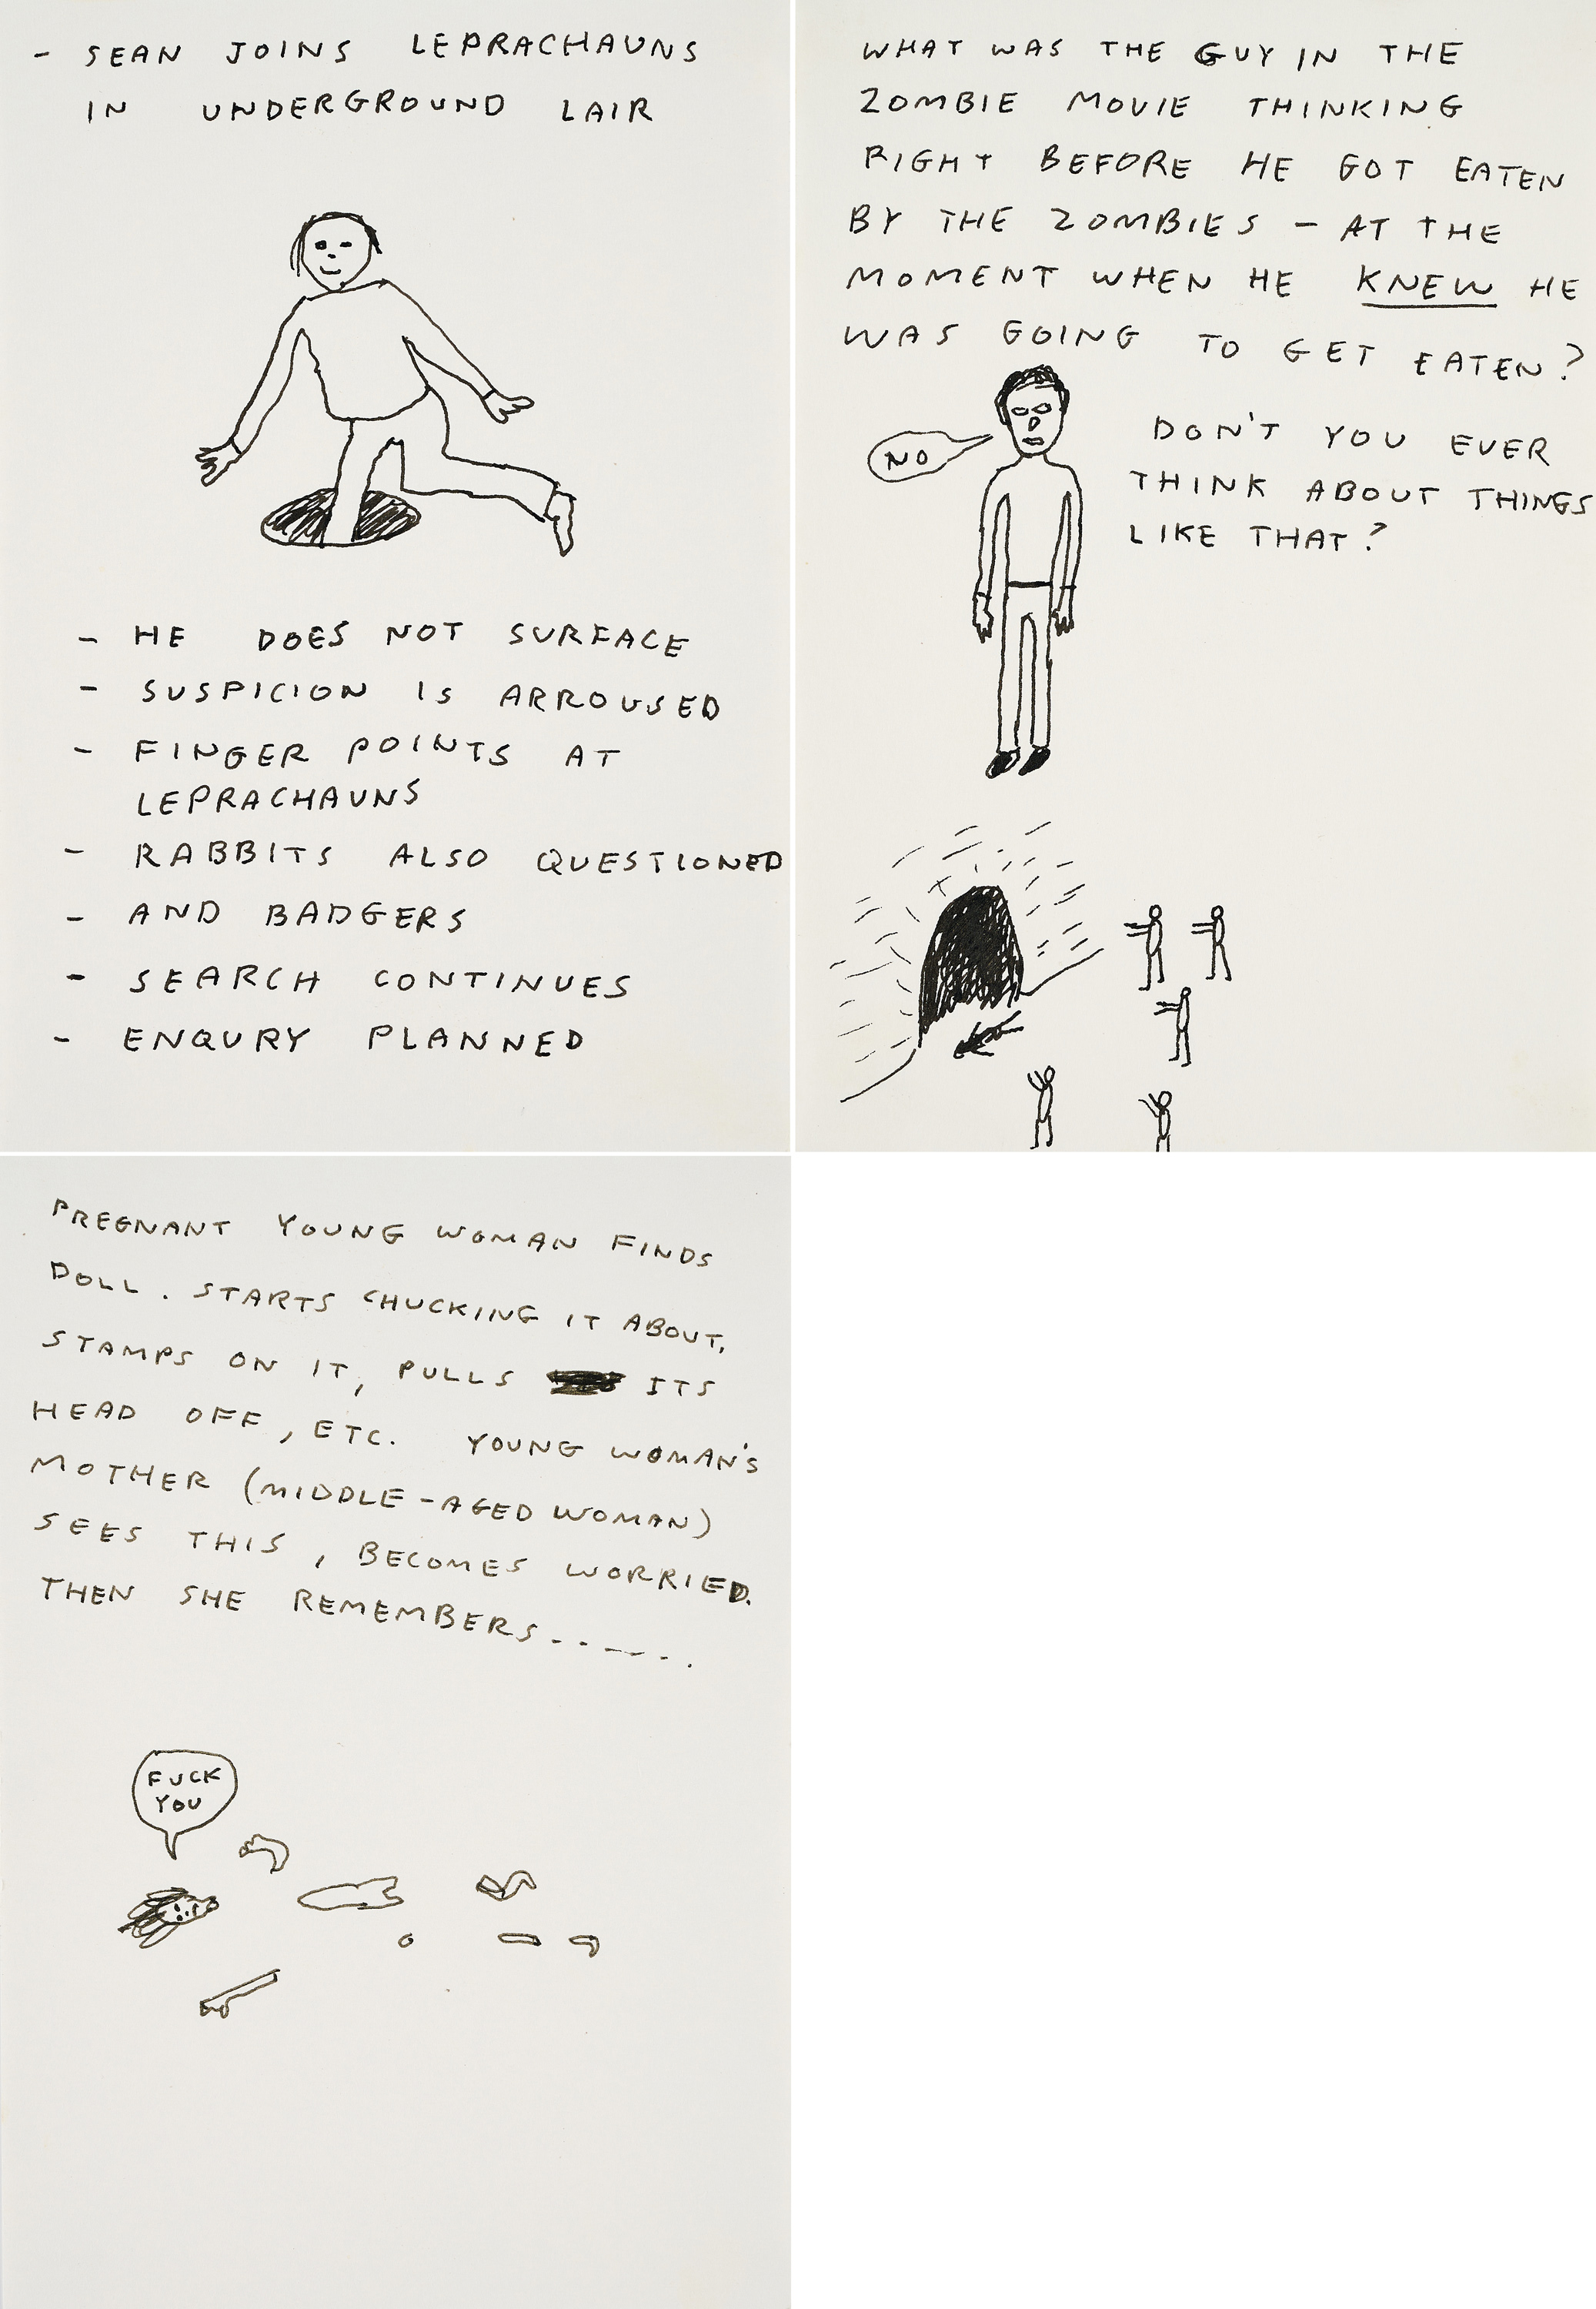 - SEAN JOINS LEPRACHAUNS
IN UNDERGROUND LAIR
- HE DOES NOT SURFACE
- SUSPICION IS ARROUSED
- FINGER POINTS AT
LEPRACHAUNS
- RABBITS ALSO QUESTIONED
- AND BADGERS
- SEARCH CONTINUES
- ENQURY PLANNED
WHAT WAS THE GUY IN THE
ZOMBIE MOVIE THINKING
RIGHT BEFORE HE GOT EATEN
BY THE ZOMBIES - AT THE
MOMENT WHEN HE KNEW HE
WAS GOING TO GET EATEN?
DON'T YOU EVER
THINK ABOUT THINGS
LIKE THAT?
NO
PREGNANT YOUNG WOMAN FINDS
DOLL. STARTS CHUCKING IT ABOUT,
STAMPS ON IT, PULLS ITS
HEAD OFF, ETC. YOUNG WOMAN'S
MOTHER (MIDDLE-AGED WOMAN)
SEES THIS, BECOMES WORRIED.
THEN SHE REMEMBERS......
FUCK
YOU